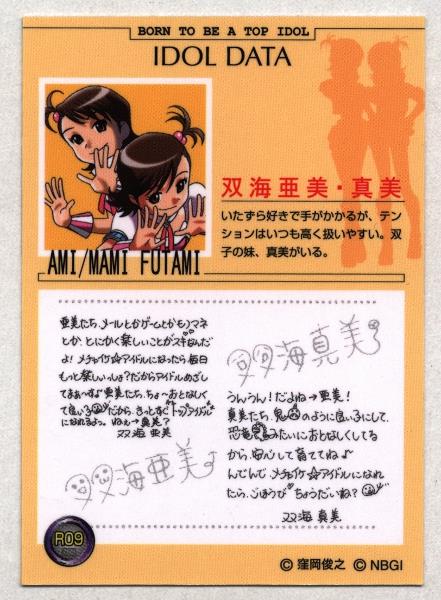 BORN TO BE A TOP IDOL
IDOL DATA
双海亜美・真美
いたずら好きで手がかかるが、テン
ションはいつも高く扱いやすい。双
子の妹、真美がいる。
AMI/MAMI FUTAMI
亜美たち、メールとかゲームとかモノマネ
とか、とにかく楽しいことがスキなんだ
よ！メチャイケ☆アイドルになったら、毎日
もっと楽しいっしょ？だからアイドルめざし
てまあ〜す♪亜美たち、ちょ〜おとなしく
て良い子だから、きっとすぐ"トップアイドル"
になれるよっ。ねぇ→真美？
双海 亜美
双海亜美
双海真美
うんうん！だよね→亜美！
真美たち、鬼のように良い子にして、
恐竜みたいにおとなしくしてる
から、安心して育ててね♪
んでんで、メチャイケ☆アイドルになれ
たら、ごほうびちょうだいね？
双海 真美
R09
© 窪岡俊之 © NBGI